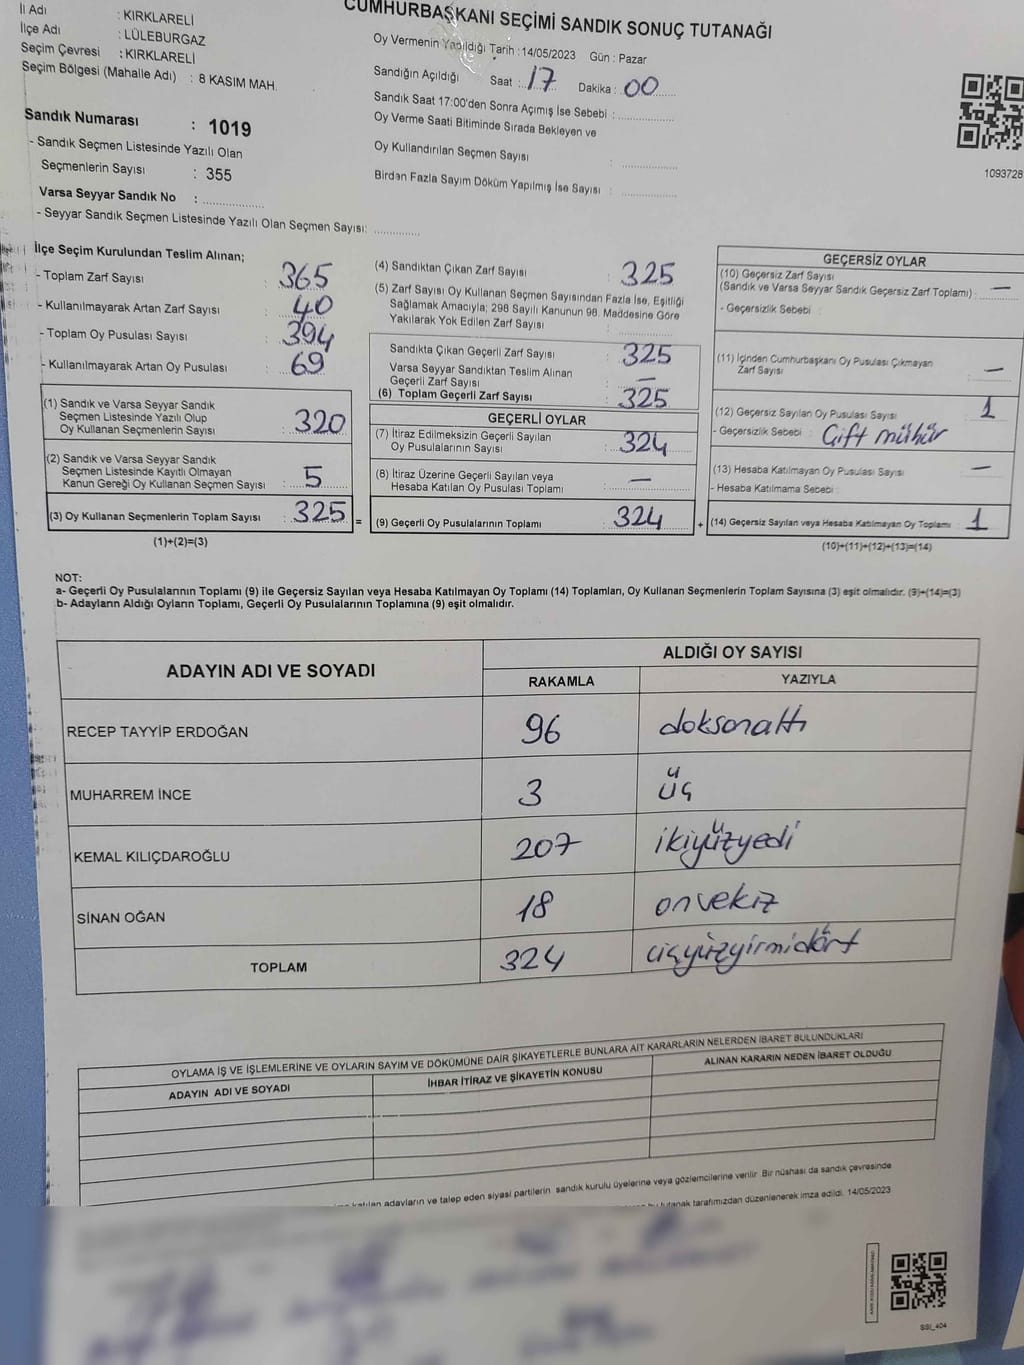 CUMHURBAŞKANI SEÇİMİ SANDIK SONUÇ TUTANAĞI
İl Adı : KIRKLARELİ
İlçe Adı : LÜLEBURGAZ
Seçim Çevresi : KIRKLARELİ
Seçim Bölgesi (Mahalle Adı) : 8 KASIM MAH.
Sandık Numarası : 1019
- Sandık Seçmen Listesinde Yazılı Olan
Seçmenlerin Sayısı : 355
Varsa Seyyar Sandık No :
- Seyyar Sandık Seçmen Listesinde Yazılı Olan Seçmen Sayısı:
Oy Vermenin Yapıldığı Tarih :14/05/2023 Gün : Pazar
Sandığın Açıldığı Saat : 17 Dakika : 00
Sandık Saat 17:00'den Sonra Açımış İse Sebebi :
Oy Verme Saati Bitiminde Sırada Bekleyen ve
Oy Kullandırılan Seçmen Sayısı :
Birden Fazla Sayım Döküm Yapılmış İse Sayısı :
1093728
İlçe Seçim Kurulundan Teslim Alınan;
- Toplam Zarf Sayısı : 365
- Kullanılmayarak Artan Zarf Sayısı : 40
- Toplam Oy Pusulası Sayısı : 394
- Kullanılmayarak Artan Oy Pusulası : 69
(1) Sandık ve Varsa Seyyar Sandık
Seçmen Listesinde Yazılı Olup
Oy Kullanan Seçmenlerin Sayısı : 320
(2) Sandık ve Varsa Seyyar Sandık
Seçmen Listesinde Kayıtlı Olmayan
Kanun Gereği Oy Kullanan Seçmen Sayısı : 5
(3) Oy Kullanan Seçmenlerin Toplam Sayısı : 325 =
(1)+(2)=(3)
(4) Sandıktan Çıkan Zarf Sayısı : 325
(5) Zarf Sayısı Oy Kullanan Seçmen Sayısından Fazla İse, Eşitliği
Sağlamak Amacıyla; 298 Sayılı Kanunun 98. Maddesine Göre
Yakılarak Yok Edilen Zarf Sayısı :
Sandıkta Çıkan Geçerli Zarf Sayısı : 325
Varsa Seyyar Sandıktan Teslim Alınan
Geçerli Zarf Sayısı : —
(6) Toplam Geçerli Zarf Sayısı : 325
GEÇERLİ OYLAR
(7) İtiraz Edilmeksizin Geçerli Sayılan
Oy Pusulasının Sayısı : 324
(8) İtiraz Üzerine Geçerli Sayılan veya
Hesaba Katılan Oy Pusulası Toplamı : —
(9) Geçerli Oy Pusulalarının Toplamı : 324 +
GEÇERSİZ OYLAR
(10) Geçersiz Zarf Sayısı
(Sandık ve Varsa Seyyar Sandık Geçersiz Zarf Toplamı) : —
- Geçersizlik Sebebi :
(11) İçinden Cumhurbaşkanı Oy Pusulası Çıkmayan
Zarf Sayısı : —
(12) Geçersiz Sayılan Oy Pusulası Sayısı : 1
- Geçersizlik Sebebi : Çift mühür
(13) Hesaba Katılmayan Oy Pusulası Sayısı : —
- Hesaba Katılmama Sebebi :
(14) Geçersiz Sayılan veya Hesaba Katılmayan Oy Toplamı : 1
(10)+(11)+(12)+(13)=(14)
NOT:
a- Geçerli Oy Pusulalarının Toplamı (9) ile Geçersiz Sayılan veya Hesaba Katılmayan Oy Toplamı (14) Toplamları, Oy Kullanan Seçmenlerin Toplam Sayısına (3) eşit olmalıdır. (9)+(14)=(3)
b- Adayların Aldığı Oyların Toplamı, Geçerli Oy Pusulalarının Toplamına (9) eşit olmalıdır.
ADAYIN ADI VE SOYADI ALDIĞI OY SAYISI
RAKAMLA YAZIYLA
RECEP TAYYİP ERDOĞAN 96 doksanaltı
MUHARREM İNCE 3 üç
KEMAL KILIÇDAROĞLU 207 ikiyüzyedi
SİNAN OĞAN 18 onsekiz
TOPLAM 324 üçyüzyirmidört
OYLAMA İŞ VE İŞLEMLERİNE VE OYLARIN SAYIM VE DÖKÜMÜNE DAİR ŞİKAYETLERLE BUNLARA AİT KARARLARIN NELERDEN İBARET BULUNDUKLARI
ADAYIN ADI VE SOYADI İHBAR İTİRAZ VE ŞİKAYETİN KONUSU ALINAN KARARIN NEDEN İBARET OLDUĞU
katılan adayların ve talep eden siyasi partilerin sandık kurulu üyelerine veya gözlemcilerine verilir. Bir nüshası da sandık çevresinde
tutanak tarafımızdan düzenlenerek imza edildi. 14/05/2023
SSİ_404